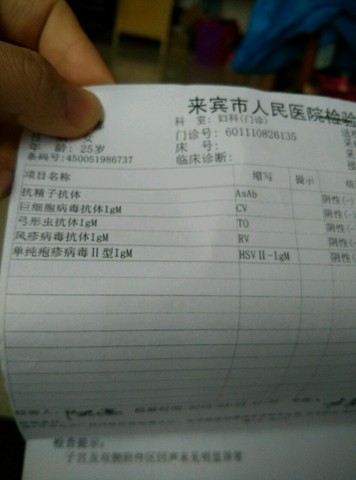 来宾市人民医院检验
科 室: 妇科(门诊)
女
门诊号: 601110826135
年 龄: 25岁
床 号:
条码号:450051986737
临床诊断:
项目名称 缩写 提示
抗精子抗体 AsAb 阴性(-)
巨细胞病毒抗体IgM CV 阴性(-)
弓形虫抗体IgM TO 阴性(-
风疹病毒抗体IgM RV 阴性(-
单纯疱疹病毒Ⅱ型IgM HSVⅡ-IgM 阴性(-
检查提示:
子宫及双侧附件区回声未见明显异常